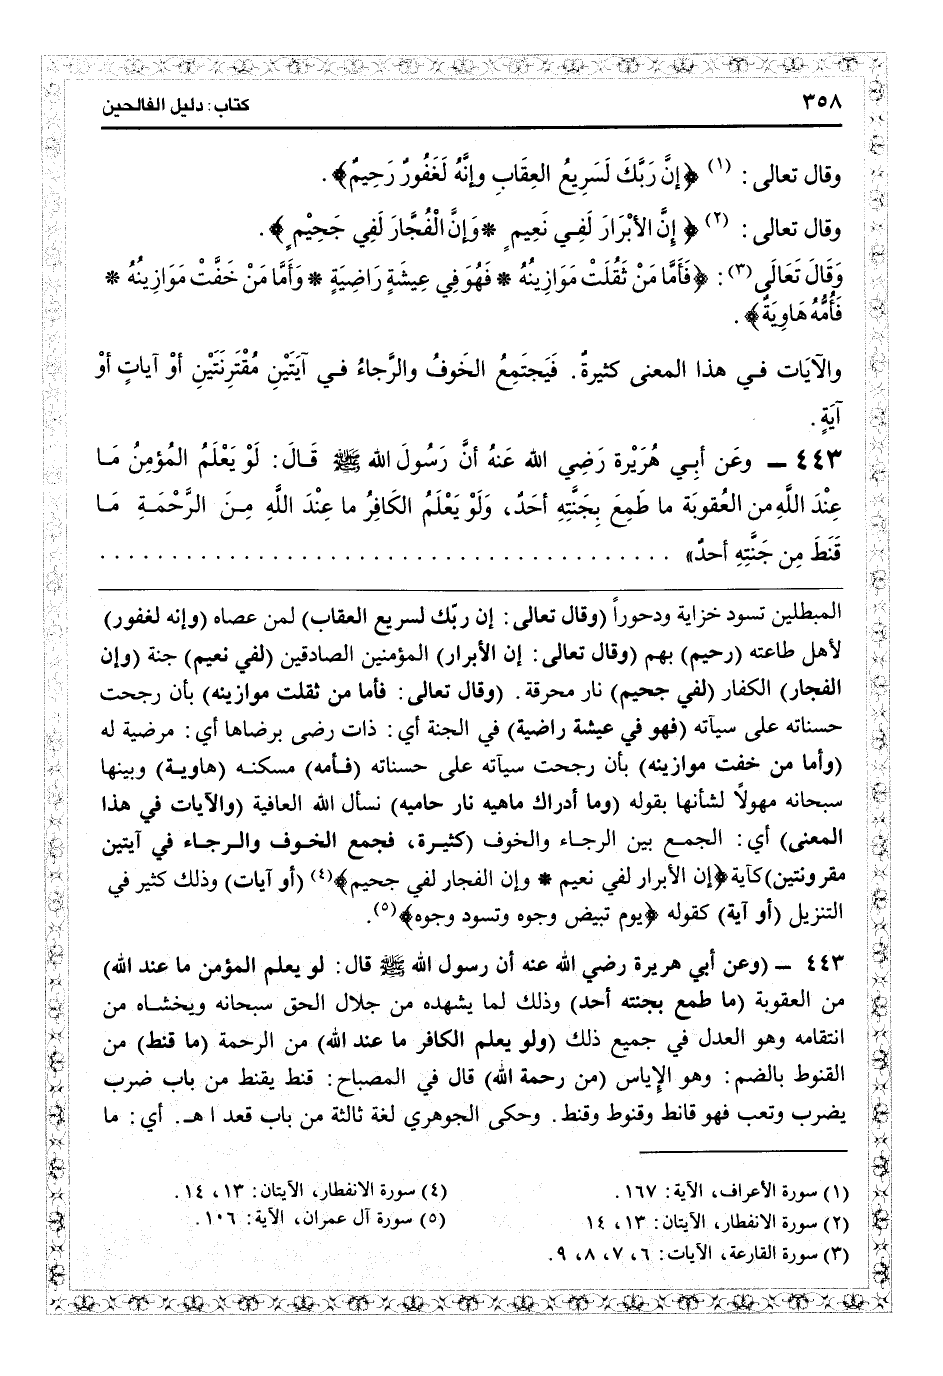 ٣٥٨
كتاب: دليل الفالحين
وقال تعالى: (١) ﴿إنَّ رَبَّكَ لَسَرِيعُ العِقَابِ وإنَّهُ لَغَفُورٌ رَحِيمٌ﴾.
وقال تعالى: (٢) ﴿ إِنَّ الأبْرَارَ لَفِي نَعِيمٍ *وَإِنَّ الْفُجَّارَ لَفِي جَحِيْمٍ ﴾.
وَقَالَ تَعَالَى(٣): ﴿فَأَمَّا مَنْ ثَقُلَتْ مَوَازِينُهُ * فَهُوَ فِي عِيشَةٍ رَاضِيَةٍ * وَأَمَّا مَنْ خَفَّت مَوَازِينُهُ *
فَأُمُّهُ هَاوِيَةٌ﴾.
والآيَات في هذا المعنى كثيرةٌ. فَيَجتَمِعُ الخَوفُ والرَّجاءُ في آيَتَيْنِ مُقْتَرِنَتَيْنِ أوْ آياتٍ أوْ
آيَةٍ.
٤٤٣ – وعَن أبِي هُرَيْرة رَضِي الله عَنهُ أنَّ رَسُولَ الله ﷺ قَالَ: لَوْ يَعْلَمُ المُؤمِنُ مَا
عِنْدَ اللَّهِ من العُقوبَة ما طَمِعَ بِجَنَّتِهِ أحَدٌ، وَلَوْ يَعْلَمُ الكَافِرُ ما عِنْدَ اللَّهِ مِنَ الرَّحْمَةِ مَا
قَنَطَ مِن جَنَّتِهِ أحدٌ» . . . . . . . . . . . . . . . . . . . . . . . . . . . . . . . . . . . . . . . .
المبطلين تسود خزاية ودحوراً (وقال تعالى: إن ربّك لسريع العقاب) لمن عصاه (وإنه لغفور)
لأهل طاعته (رحيم) بهم (وقال تعالى: إن الأبرار) المؤمنين الصادقين (لفي نعيم) جنة (وإن
الفجار) الكفار (لفي جحيم) نار محرقة. (وقال تعالى: فأما من ثقلت موازينه) بأن رجحت
حسناته على سيآته (فهو في عيشة راضية) في الجنة أي: ذات رضى برضاها أي: مرضية له
(وأما من خفت موازينه) بأن رجحت سيآته على حسناته (فأمه) مسكنه (هاوية) وبينها
سبحانه مهولًا لشأنها بقوله (وما أدراك ماهيه نار حاميه) نسأل الله العافية (والآيات في هذا
المعنى) أي: الجمع بين الرجاء والخوف (كثيرة، فجمع الخوف والرجاء في آيتين
مقرونتين)كآية﴿إن الأبرار لفي نعيم * وإن الفجار لفي جحيم﴾(٤) (أو آيات) وذلك كثير في
التنزيل (أو آية) كقوله ﴿يوم تبيض وجوه وتسود وجوه﴾(٥).
٤٤٣ – (وعن أبي هريرة رضي الله عنه أن رسول الله ﷺ قال: لو يعلم المؤمن ما عند الله)
من العقوبة (ما طمع بجنته أحد) وذلك لما يشهده من جلال الحق سبحانه ويخشاه من
انتقامه وهو العدل في جميع ذلك (ولو يعلم الكافر ما عند الله) من الرحمة (ما قنط) من
القنوط بالضم: وهو الإياس (من رحمة الله) قال في المصباح: قنط يقنط من باب ضرب
يضرب وتعب فهو قانط وقنوط وقنط. وحكى الجوهري لغة ثالثة من باب قعد اهـ. أي: ما
(١) سورة الأعراف، الآية: ١٦٧.
(٢) سورة الانفطار، الآيتان: ١٣، ١٤
(٣) سورة القارعة، الآيات: ٦، ٧، ٨، ٩.
(٤) سورة الانفطار، الآيتان: ١٣، ١٤.
(٥) سورة آل عمران، الآية: ١٠٦.